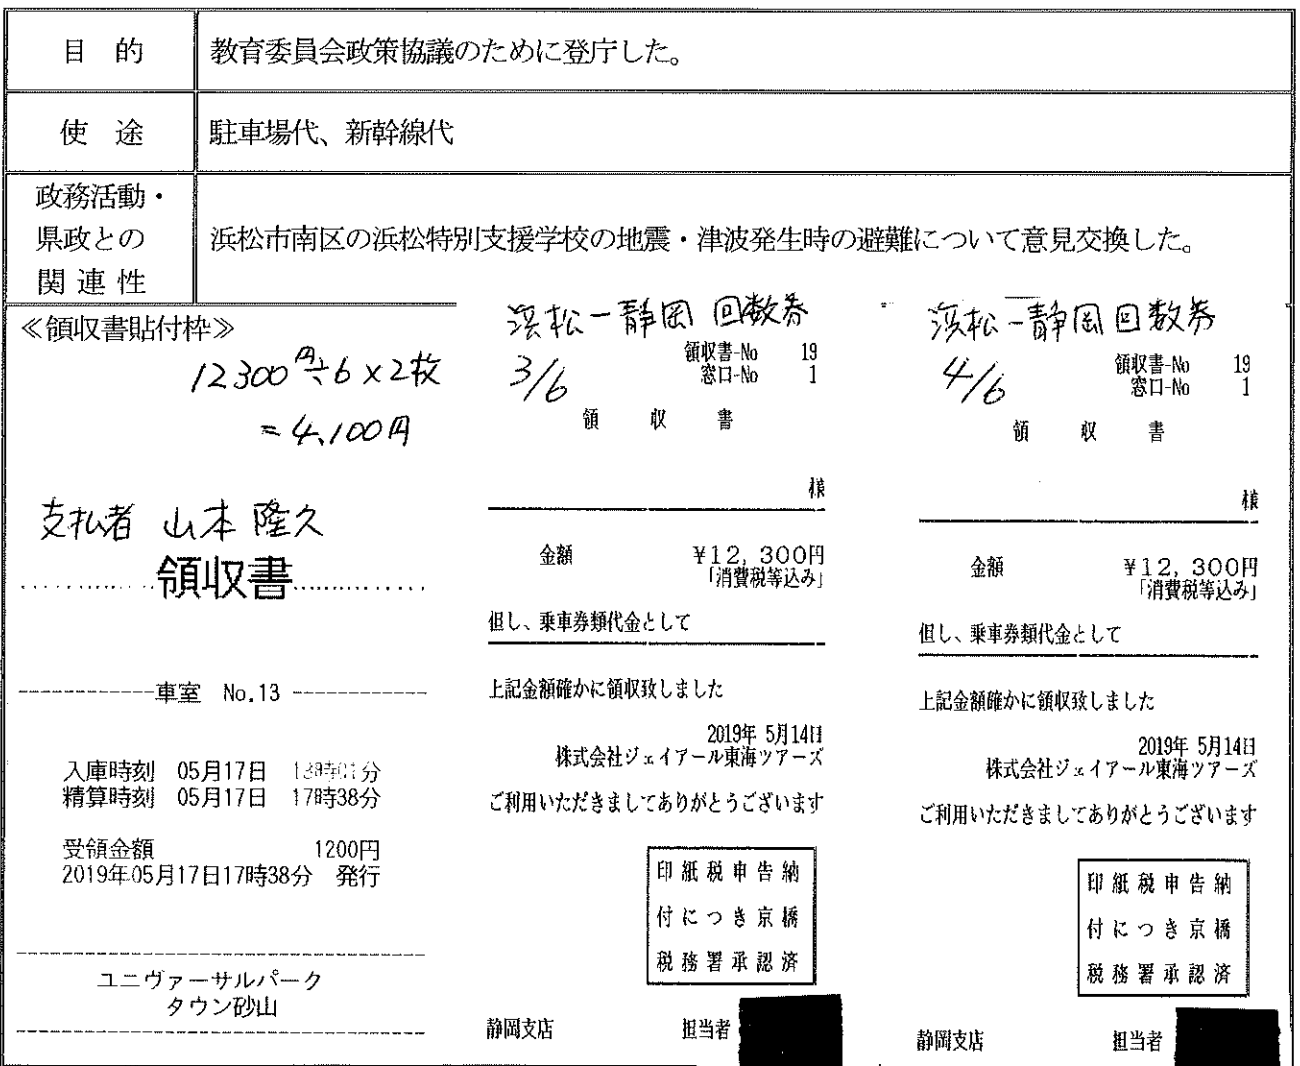 目 的
教育委員会政策協議のために登庁した。
使 途
駐車場代、新幹線代
政務活動・
県政との
関 連 性
浜松市南区の浜松特別支援学校の地震・津波発生時の避難について意見交換した。
≪領収書貼付枠≫
12300円÷6×2枚
=4,100円
支払者 山本 隆久
領収書
車室 No.13
入庫時刻 05月17日 13時01分
精算時刻 05月17日 17時38分
受領金額 1200円
2019年05月17日17時38分 発行
ユニヴァーサルパーク
タウン砂山
浜松-静岡 回数券
3/6
領収書-No 19
窓口-No 1
領 収 書
様
金額 ¥12,300円
「消費税等込み」
但し、乗車券類代金として
上記金額確かに領収致しました
2019年 5月14日
株式会社ジェイアール東海ツアーズ
ご利用いただきましてありがとうございます
印紙税申告納
付につき京橋
税務署承認済
静岡支店 担当者
浜松-静岡 回数券
4/6
領収書-No 19
窓口-No 1
領 収 書
様
金額 ¥12,300円
「消費税等込み」
但し、乗車券類代金として
上記金額確かに領収致しました
2019年 5月14日
株式会社ジェイアール東海ツアーズ
ご利用いただきましてありがとうございます
印紙税申告納
付につき京橋
税務署承認済
静岡支店 担当者